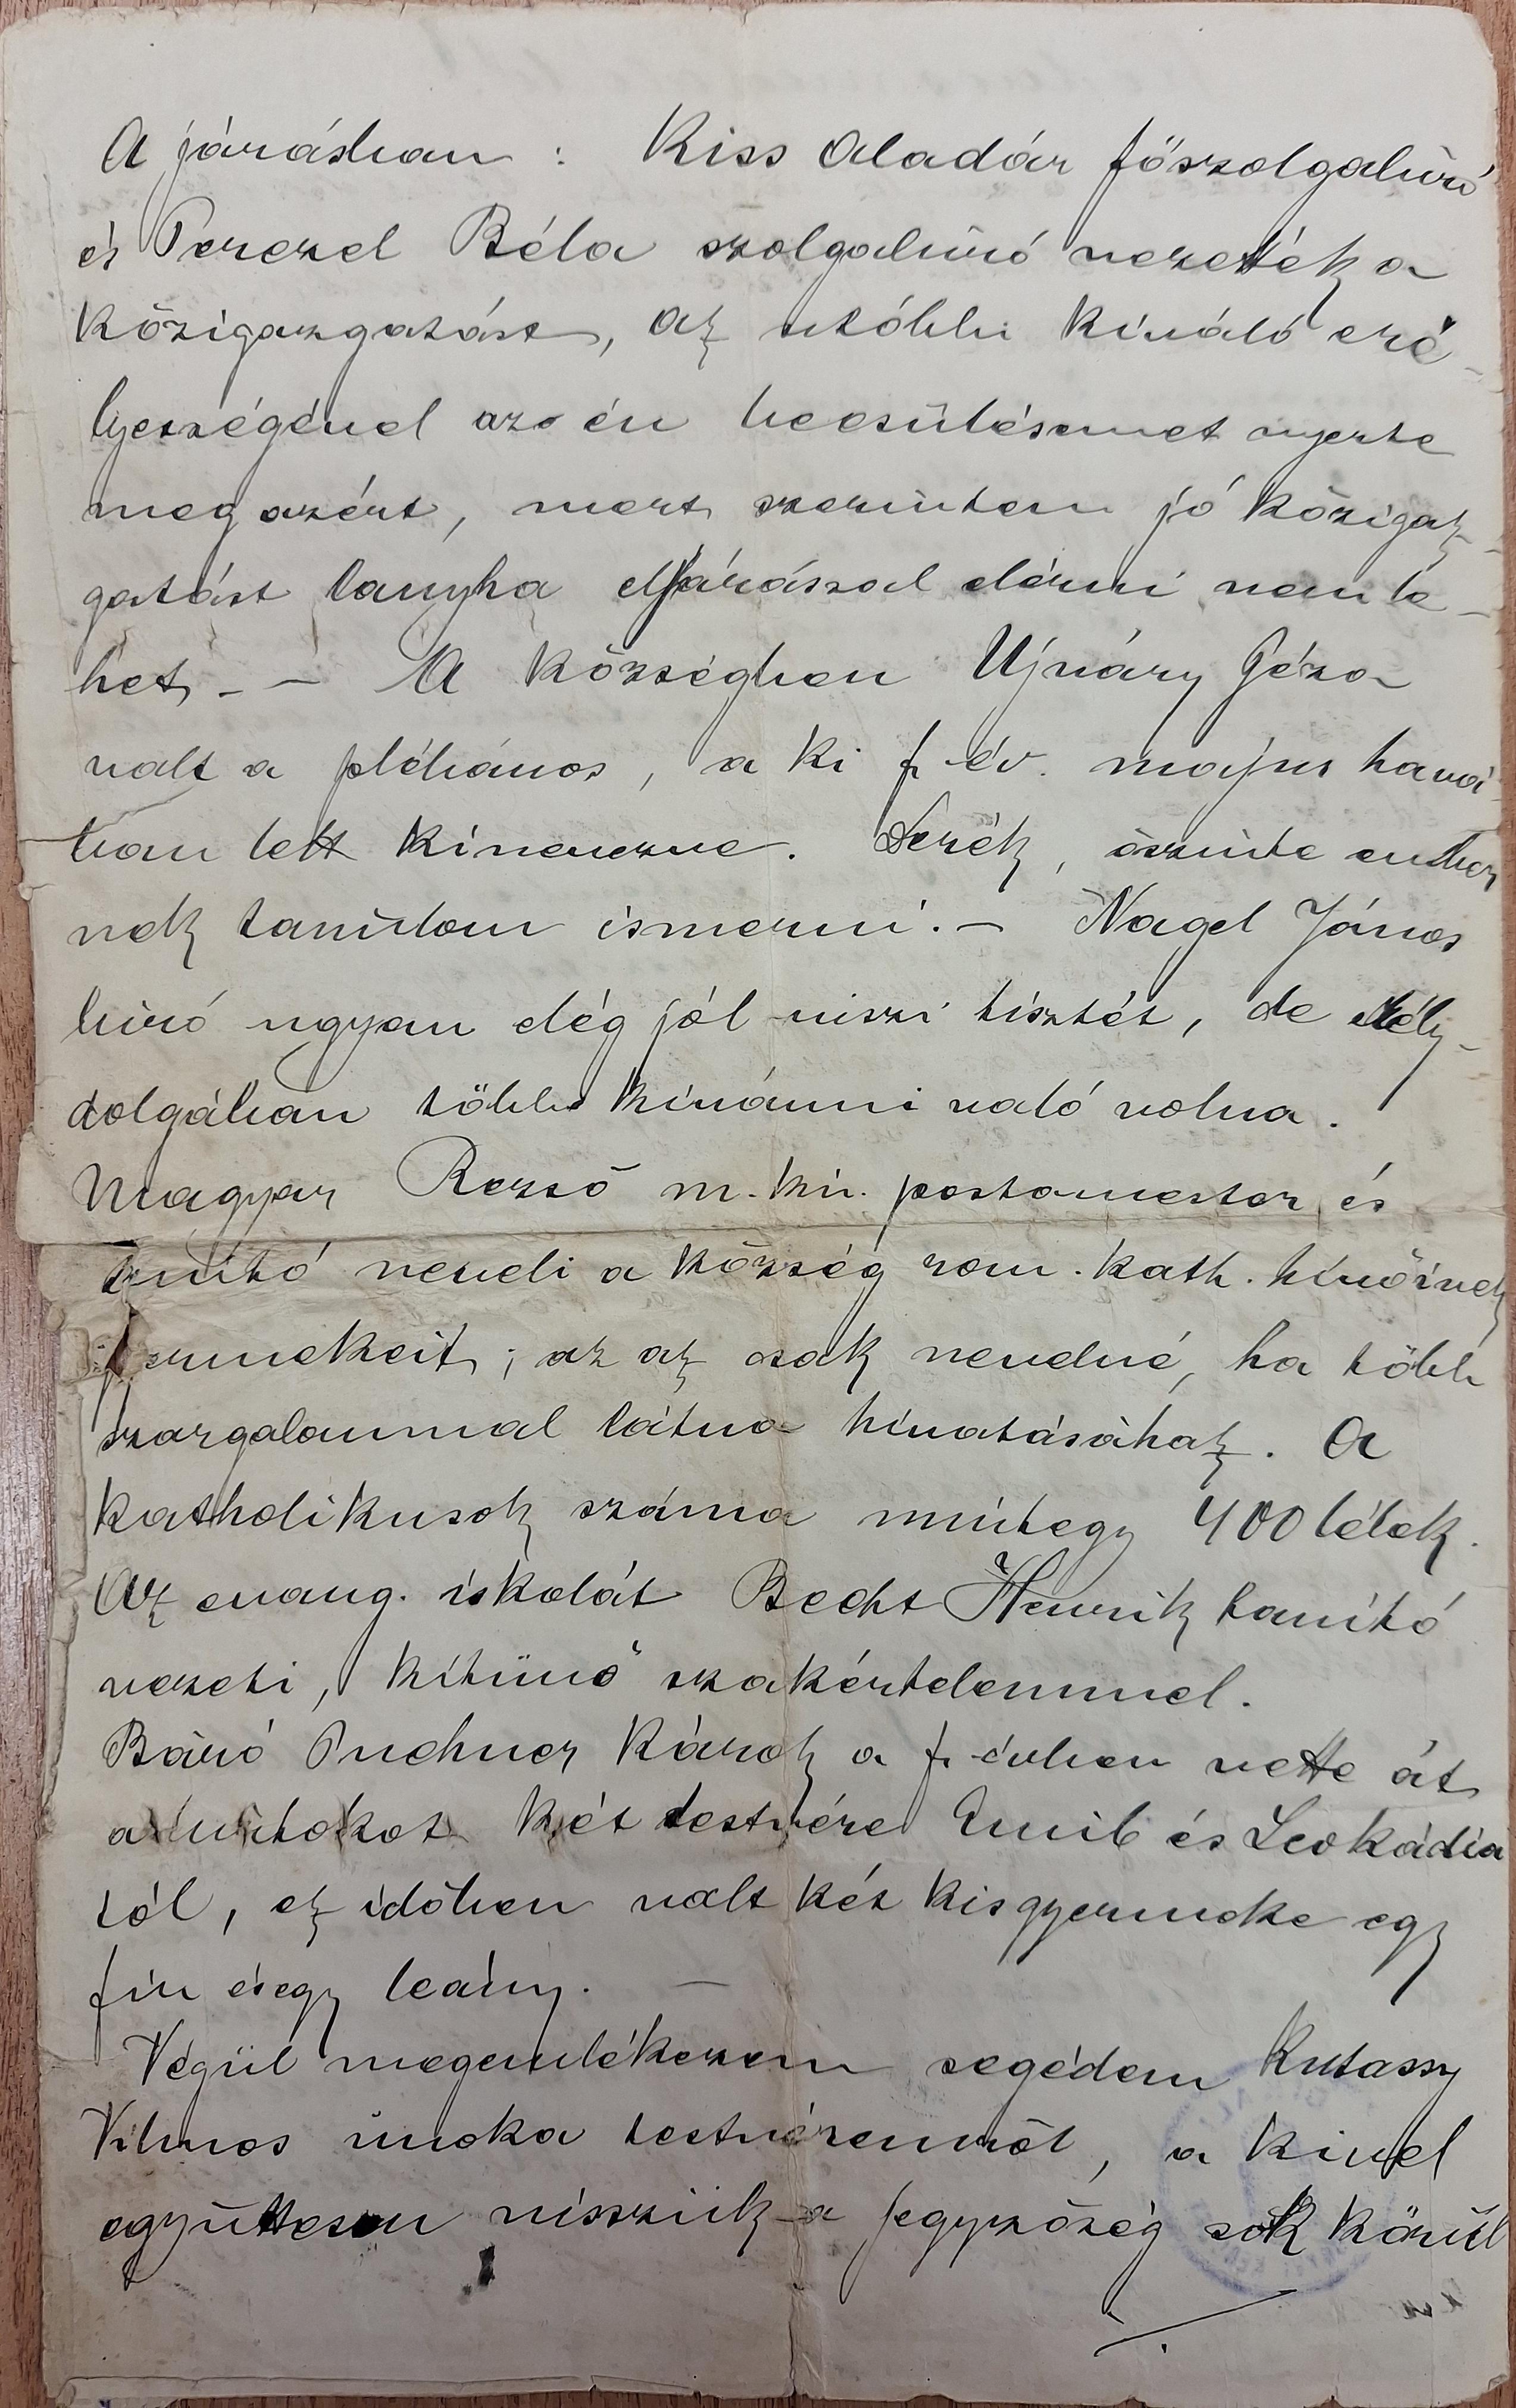 A járásban : Kiss Aladár főszolgabíró
és Perczel Béla szolgabíró vezették a
közigazgatást, az utóbbi kiváló eré-
lyességével az én becsülésemet nyerte
meg azért, mert szerintem jó közigaz-
gatást lanyha eljárással elérni nem le-
het. - - A községben Ujváry Géza
valt a plébános, a ki f. év. május havá-
ban lett kinevezve. Derék, őszinte ember
nek tanultam ismerni. - Nagel János
bíró ugyan elég jól viszi tisztét, de
dolgában több kivánni való volna.
Magyar Rezső m. kir. postamester és
tanító neveli a község rom. kath. hívőinek
gyermekeit ; az az csak nevelné, ha több
szorgalommal látna hivatásához. A
katholikusok száma mintegy 400 lélek.
Az evang. iskolát Becht Henrik tanító
vezeti, kitünő szakértelemmel.
Báró Puchner Károly a f. évben vette át
a birtokot két testvére Emil és Leokádia
tól, ez időben valt két kis gyermeke egy
fiu és egy leány. -
Végül megemlékezem segédem Kutassy
Vilmos unoka testvéremről, a kivel
együttesen visszük a jegyzőség sok körül